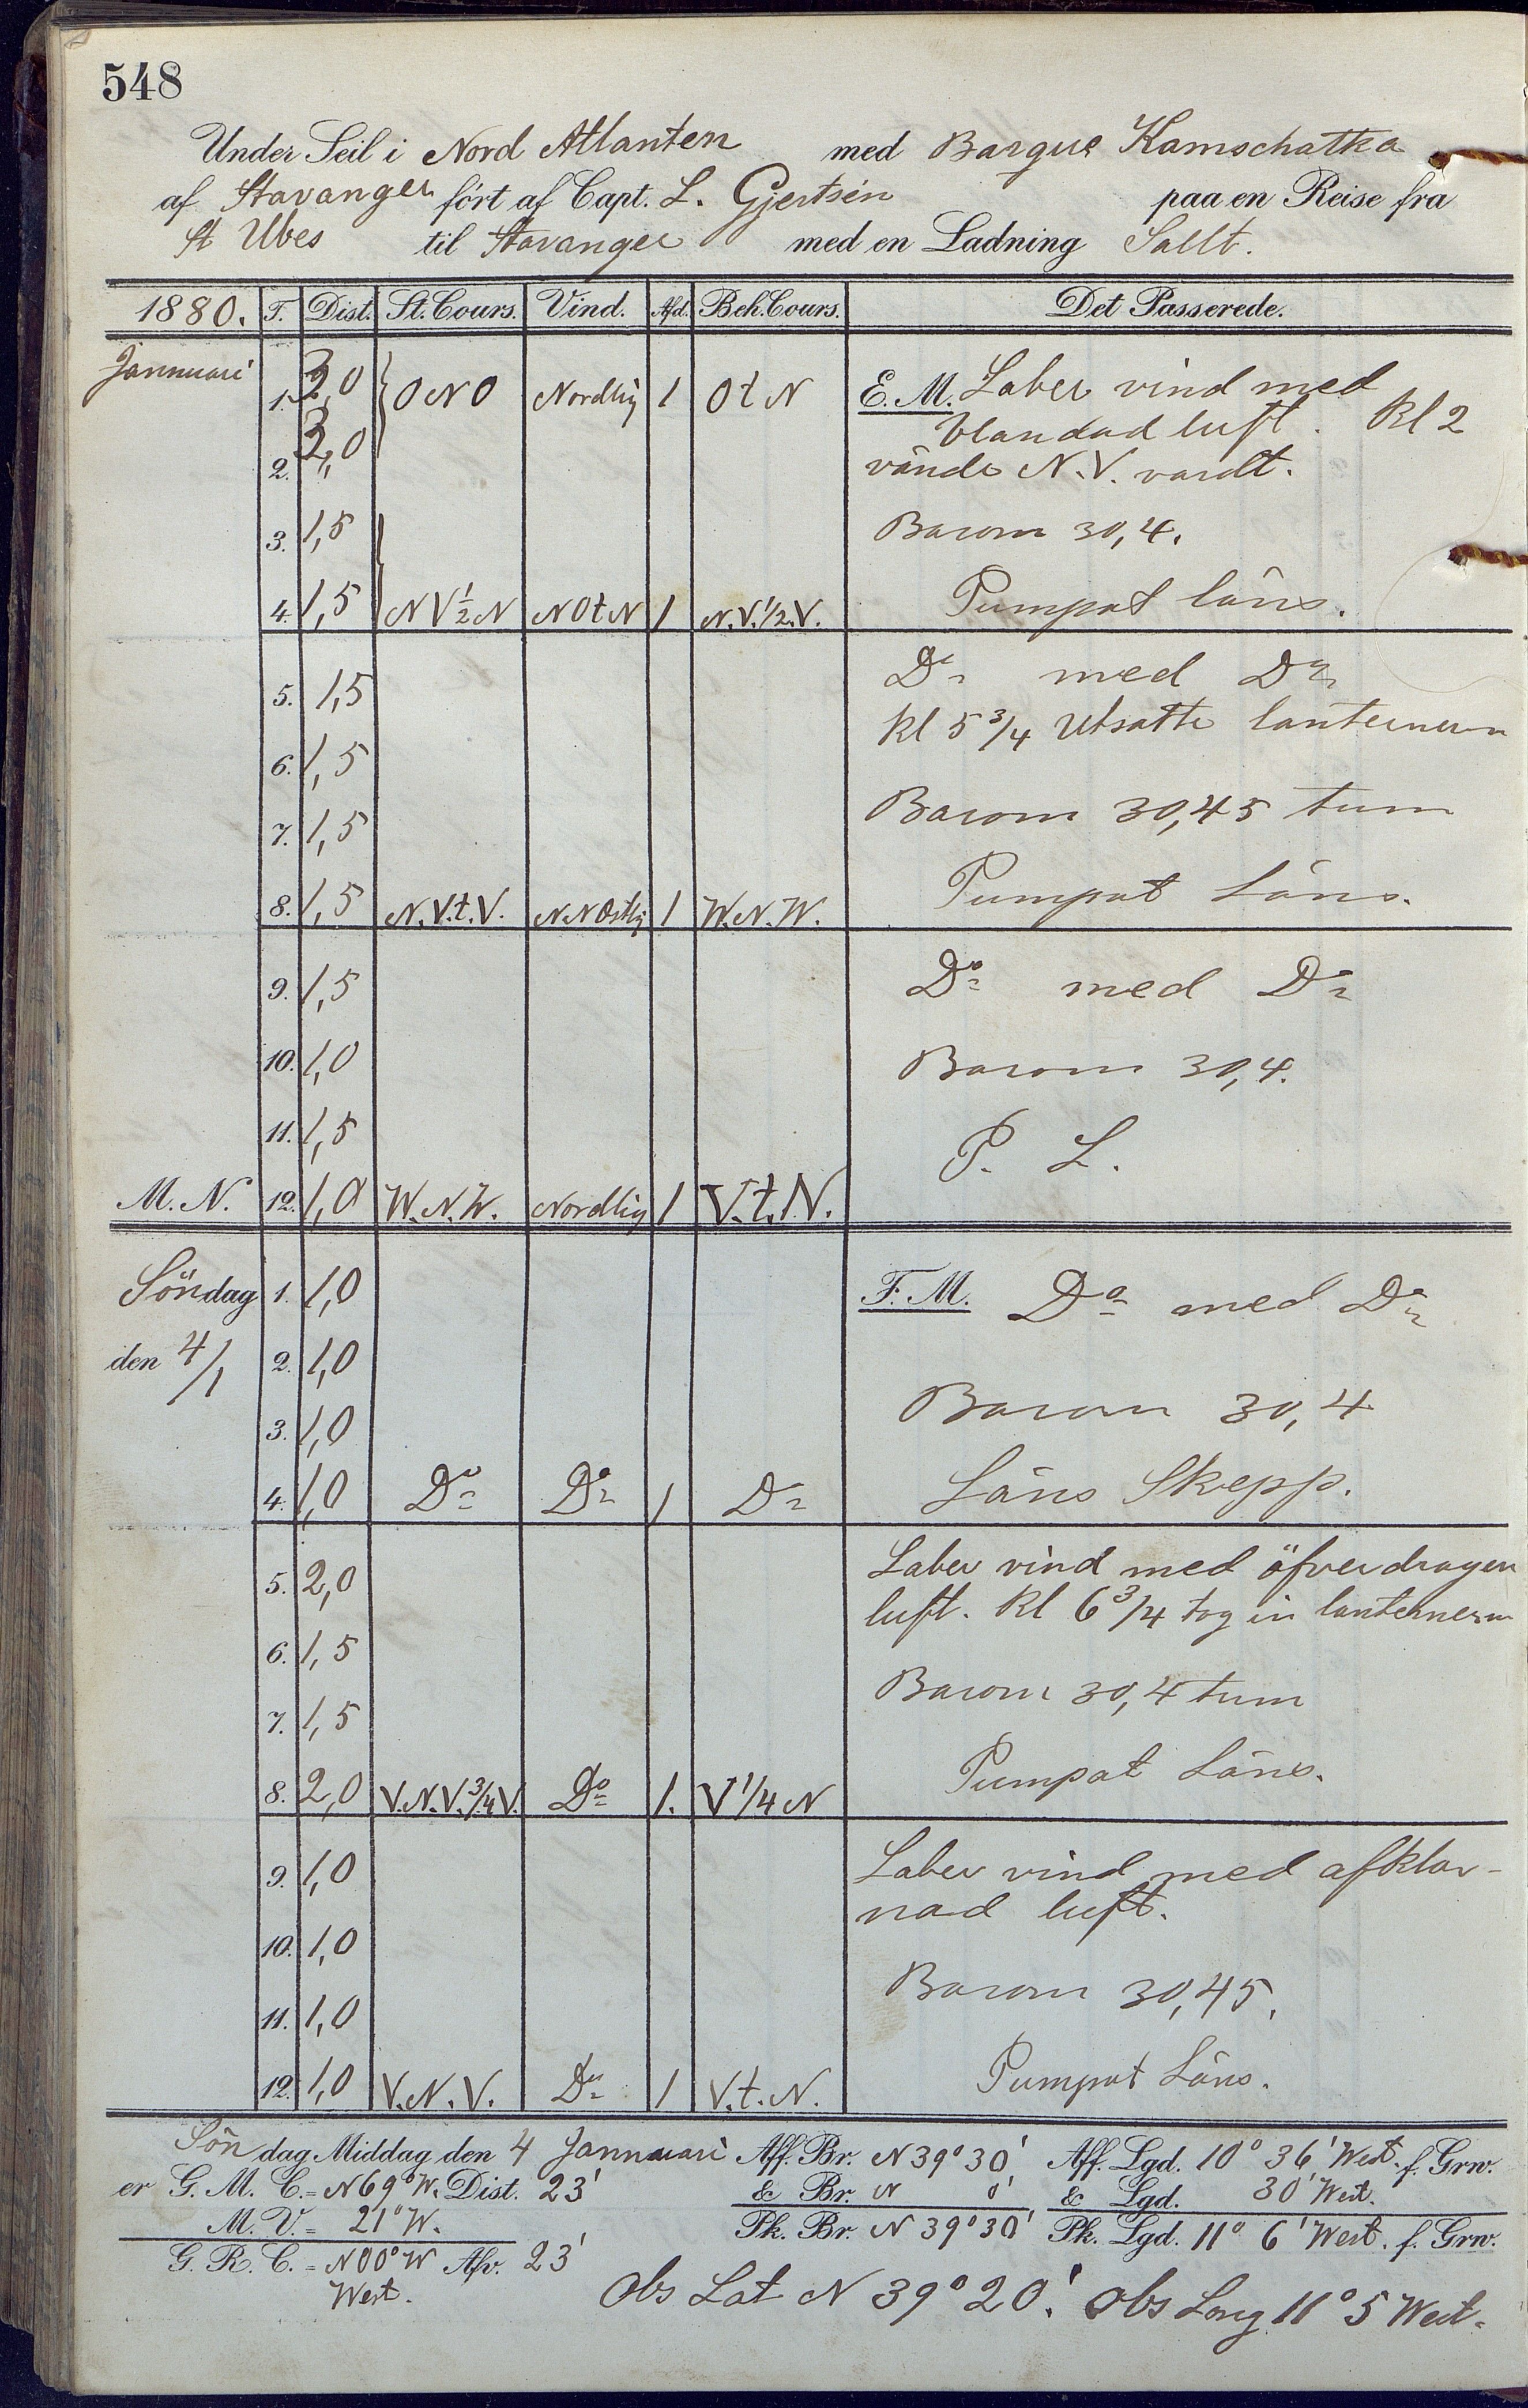 548
Under Seil i Nord Atlanten med Barque Kamschatka
af Stavanger ført af Capt. L. Gjertsén paa en Reise fra
St Ubes til Stavanger med en Ladning Sallt.
1880. T. Dist. St. Cours. Vind. Afd. Beh. Cours. Det Passerede.
Jannuari
1. 3,0 ONO Nordlig 1 OtN E. M. Laber vind med
blandad luft. Kl 2
2. 3,0 vände N.V. vardt.
3. 1,5 Barom 30,4.
4. 1,5 NV½N NOtN 1 N.V.½.V. Pumpat läns.
5. 1,5 Do med Do
Kl 5¾ Utsatte lanternern
6. 1,5
7. 1,5 Barom 30,45 tum
8. 1,5 N.V.t.V. NNOstlig 1 W.N.W. Pumpat Läns.
9. 1,5 Do med Do
10. 1,0 Barom 30,4.
11. 1,5 P. L.
M. N. 12. 1,0 W.N.W. Nordlig 1 V.t.N.
Söndag 1. 1,0 F. M. Do med Do
den 4/1 2. 1,0
3. 1,0 Barom 30,4
4. 1,0 Do Do 1 Do Läns Skepp.
5. 2,0 Laber vind med öfverdragen
luft. Kl 6¾ tog in lanternern
6. 1,5
7. 1,5 Barom 30,4 tum
8. 2,0 V.N.V.¾V. Do 1. V¼N Pumpat Läns.
9. 1,0 Laber vind med afklar-
nad luft.
10. 1,0
11. 1,0 Barom 30,45.
12. 1,0 V.N.V. Do 1 V.t.N. Pumpat Läns.
Söndag Middag den 4 Jannuari Aff. Br. N 39° 30' Aff. Lgd. 10° 36' West. f. Grw.
er G. M. C. = N 69° W. Dist. 23' & Br. N 0' & Lgd. 30' West.
M. V. = 21° W. Pk. Br. N 39° 30' Pk. Lgd. 11° 6' West. f. Grw.
G. R. C. = N00° W Afv. 23'
West. Obs Lat N 39° 20'. Obs Long 11° 5 West.